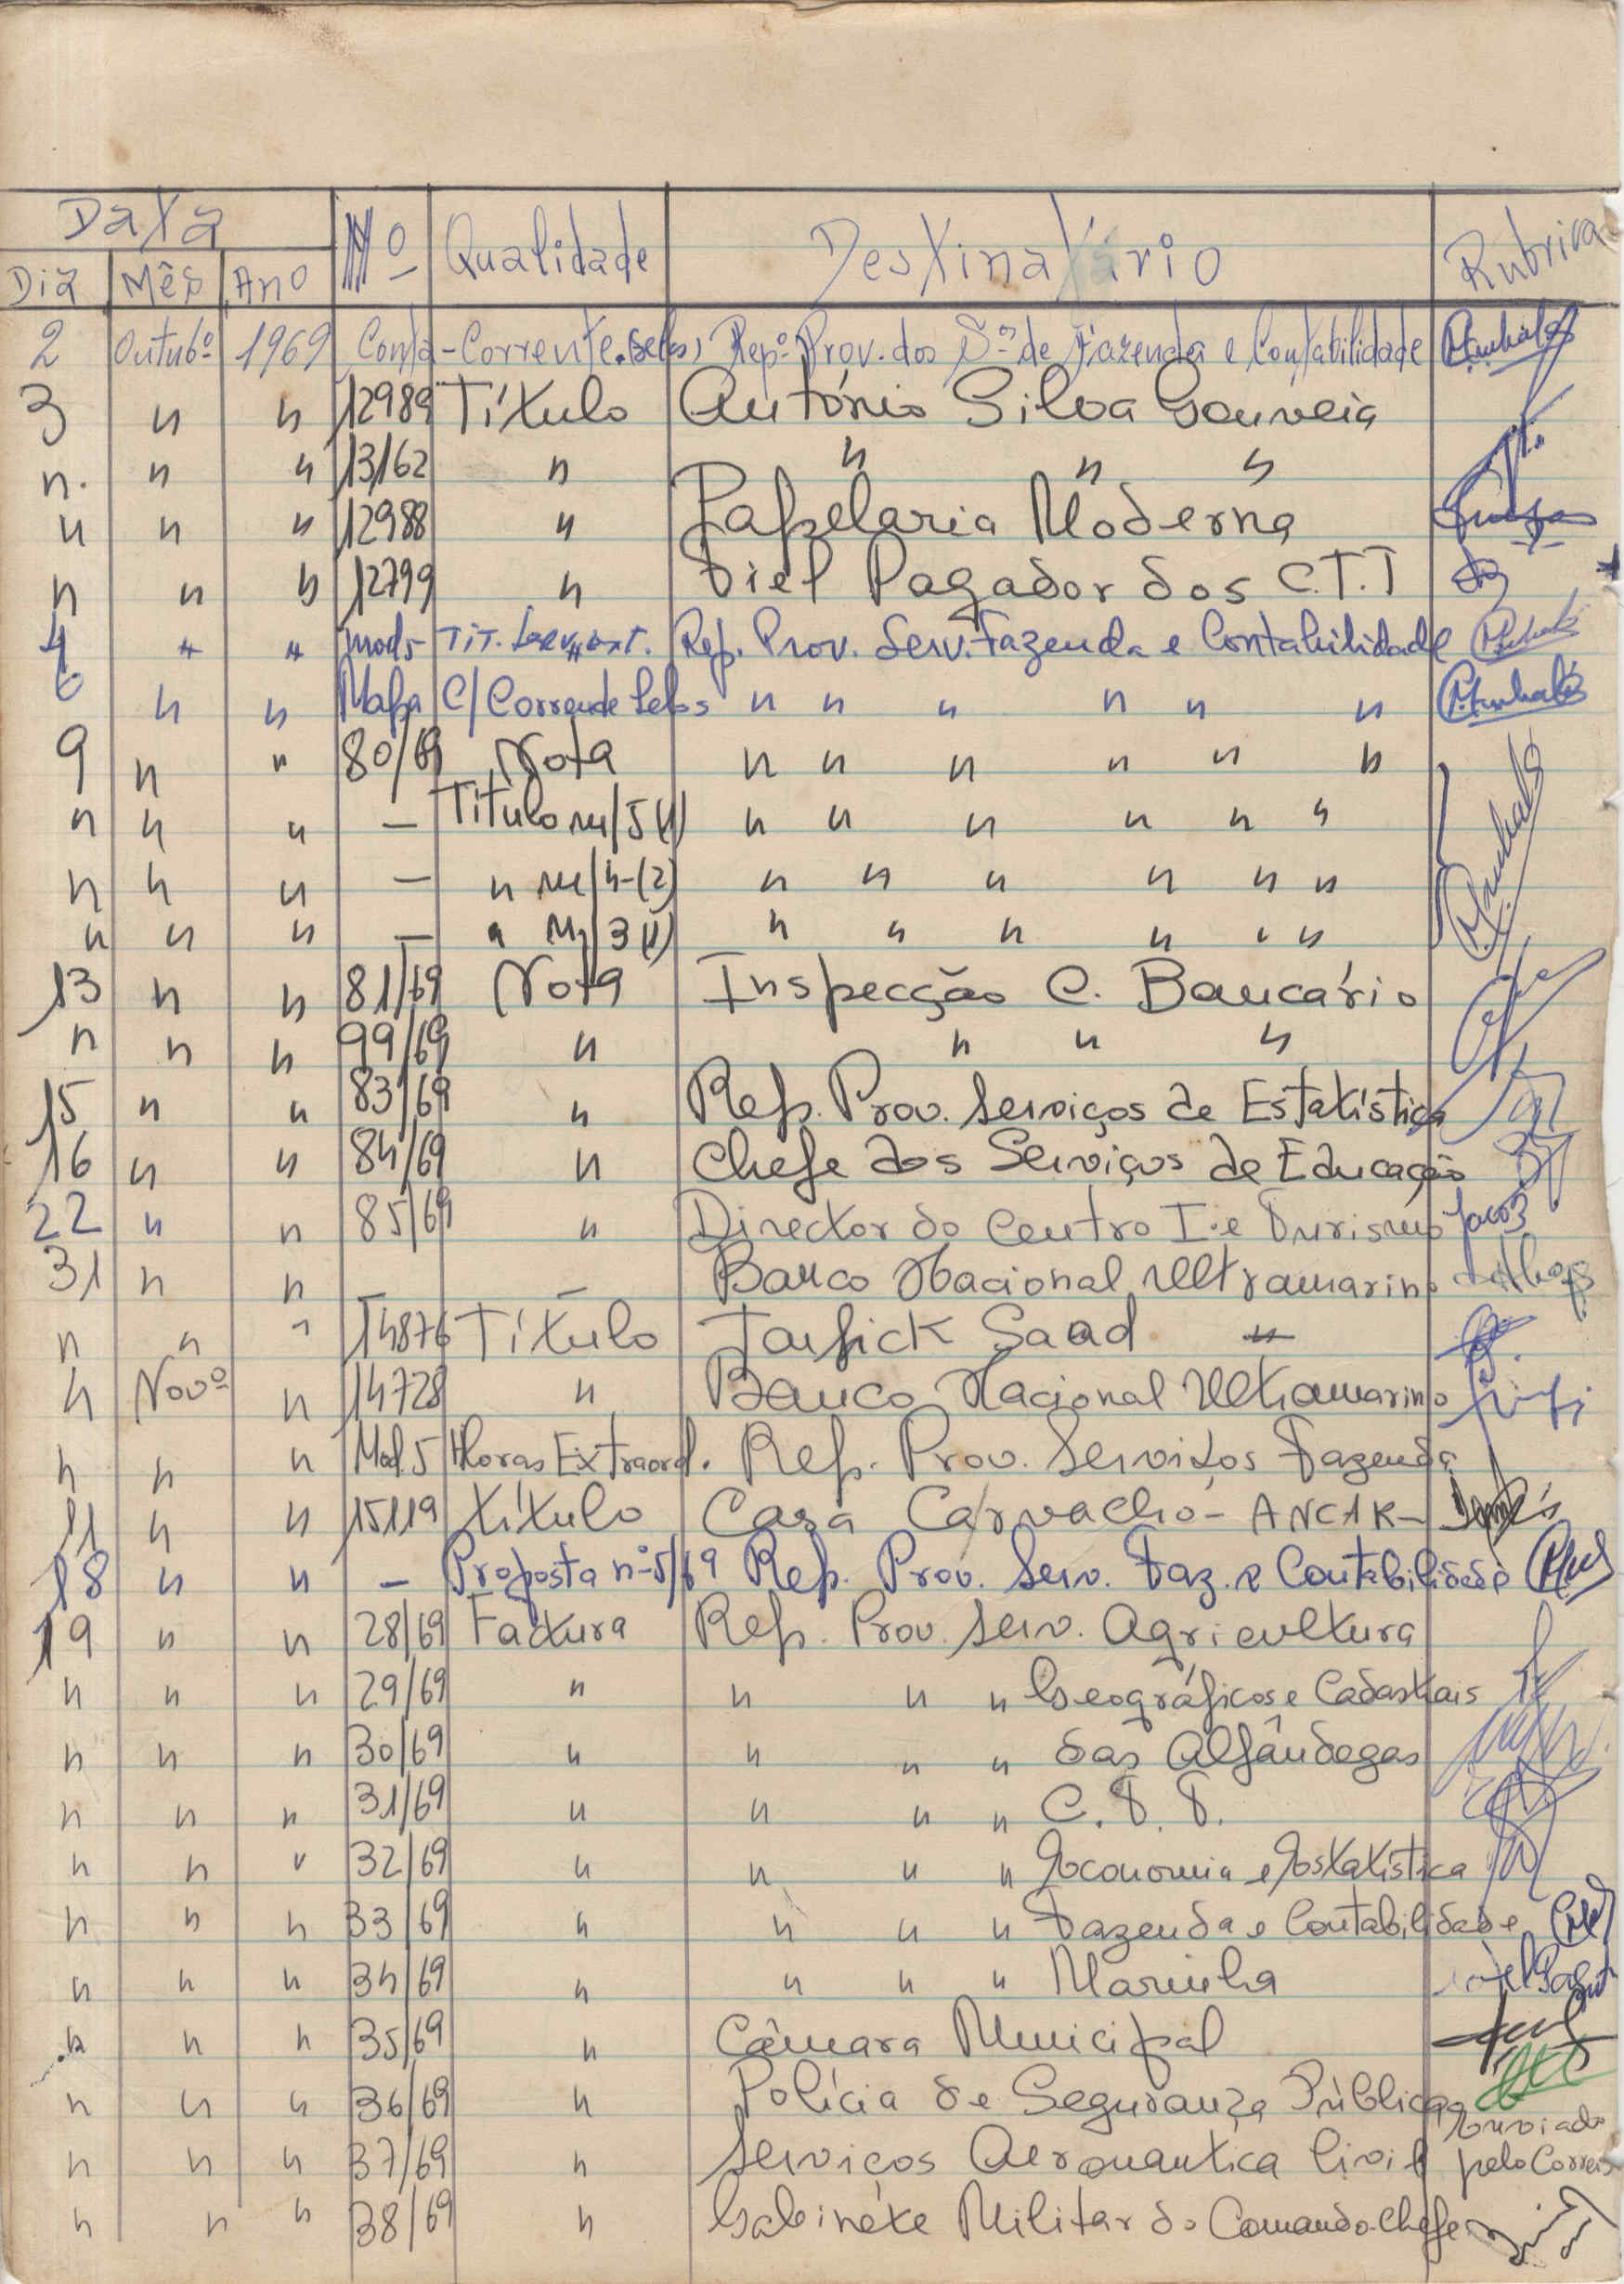 Data Nº Qualidade Destinatário Rubrica
Dia Mês Ano
2 Outubº 1969 Conta-Corrente (Selos) Repº. Prov. dos Sºs de Fazenda e Contabilidade
3 " " 12989 Título António Silva Gouveia
" " " 13162 " " " "
" " " 12988 " Papelaria Moderna
" " " 12799 " Fiel Pagador dos C.T.T
4 " " mod 5 Tit. ext. Rep. Prov. Serv. Fazenda e Contabilidade
6 " " Mapa C/Corrente Selos " " " " " "
9 " " 80/69 Nota " " " " " "
" " " — Titulo m/5 (1) " " " " " "
" " " — " m/4-(2) " " " " " "
" " " — " M/3 (1) " " " " " "
13 " " 81/69 Nota Inspecção C. Bancário
" " " 99/69 " " " "
15 " " 83/69 " Rep. Prov. Serviços de Estatística
16 " " 84/69 " Chefe dos Serviços de Educação
22 " " 85/69 " Director do Centro I. e Turismo
31 " " — — Banco Nacional Ultramarino
" " " 14876 Título Taufick Saad "
" Novº " 14728 " Banco Nacional Ultramarino
" " " Mod. 5 Horas Extraord. Rep. Prov. Serviços Fazenda
11 " " 15119 título Casa Carvacho - ANCAR -
18 " " — Proposta nº 5/69 Rep. Prov. Serv. Faz. e Contabilidade
19 " " 28/69 Factura Rep. Prov. Serv. Agricultura
" " " 29/69 " " " " Geográficos e Cadastrais
" " " 30/69 " " " " das Alfândegas
" " " 31/69 " " " " C.T.T.
" " " 32/69 " " " " Economia e Estatística
" " " 33/69 " " " " Fazenda e Contabilidade
" " " 34/69 " " " " Marinha
" " " 35/69 " Câmara Municipal
" " " 36/69 " Polícia de Segurança Pública
" " " 37/69 " Serviços Aeronautica Civil Enviado pelo Correio
" " " 38/69 " Gabinete Militar do Comando-Chefe